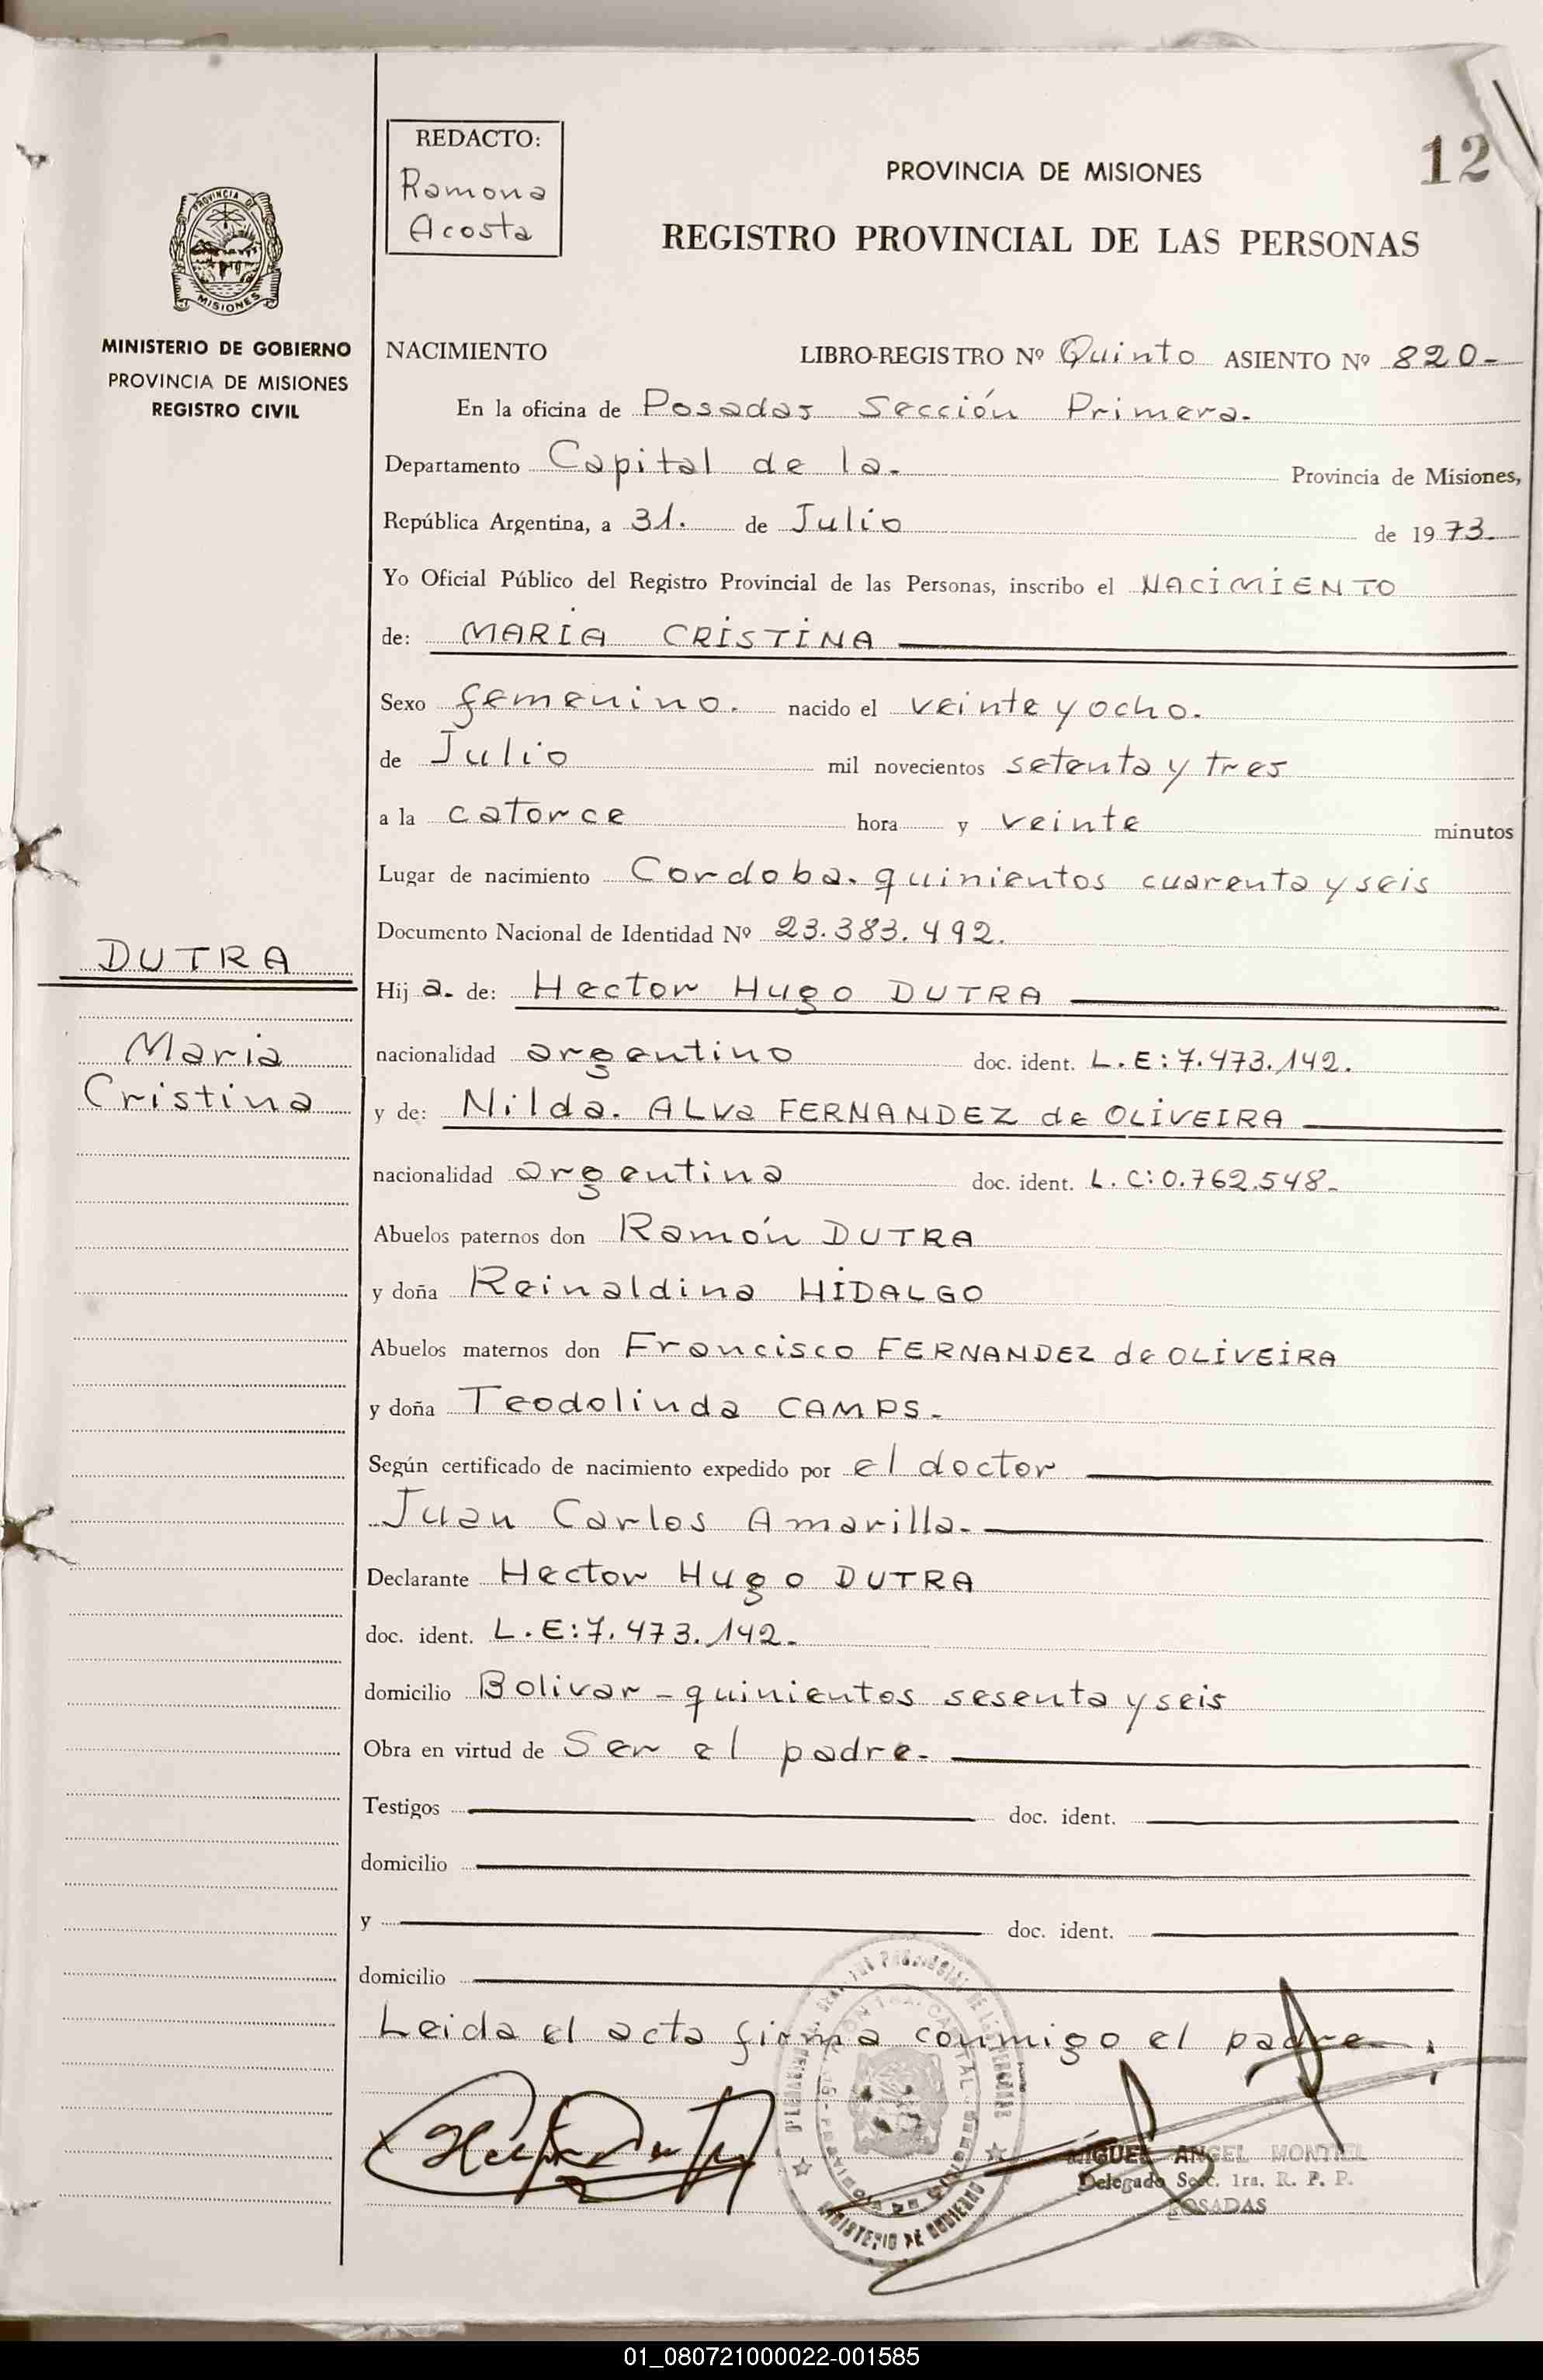 REDACTO:
Ramona
Acosta
PROVINCIA DE MISIONES
12
REGISTRO PROVINCIAL DE LAS PERSONAS
PROVINCIA DE
MISIONES
MINISTERIO DE GOBIERNO
PROVINCIA DE MISIONES
REGISTRO CIVIL
NACIMIENTO LIBRO-REGISTRO Nº Quinto ASIENTO Nº 820-
En la oficina de Posadas Sección Primera.
Departamento Capital de la. Provincia de Misiones,
República Argentina, a 31. de Julio de 1973.
Yo Oficial Público del Registro Provincial de las Personas, inscribo el NACIMIENTO
de: MARIA CRISTINA
Sexo femenino. nacido el veinte y ocho.
de Julio mil novecientos setenta y tres
a la catorce hora y veinte minutos
Lugar de nacimiento Cordoba. quinientos cuarenta y seis
Documento Nacional de Identidad Nº 23.383.492.
DUTRA
Hij a. de: Hector Hugo DUTRA
Maria
nacionalidad argentino doc. ident. L.E:7.473.142.
Cristina
y de: Nilda. ALVa FERNANDEZ de OLIVEIRA
nacionalidad argentina doc. ident. L.C:0.762.548-
Abuelos paternos don Ramón DUTRA
y doña Reinaldina HIDALGO
Abuelos maternos don Francisco FERNANDEZ de OLIVEIRA
y doña Teodolinda CAMPS-
Según certificado de nacimiento expedido por el doctor
Juan Carlos Amarilla-
Declarante Hector Hugo DUTRA
doc. ident. L.E:7.473.142-
domicilio Bolivar - quinientos sesenta y seis
Obra en virtud de Ser el padre-
Testigos doc. ident.
domicilio
y doc. ident.
domicilio
Leida el acta firma conmigo el padre
MIGUEL ANGEL MONTIEL
Delegado Secc. 1ra. R. P. P.
POSADAS
MINISTERIO DE GOBIERNO
01_080721000022-001585